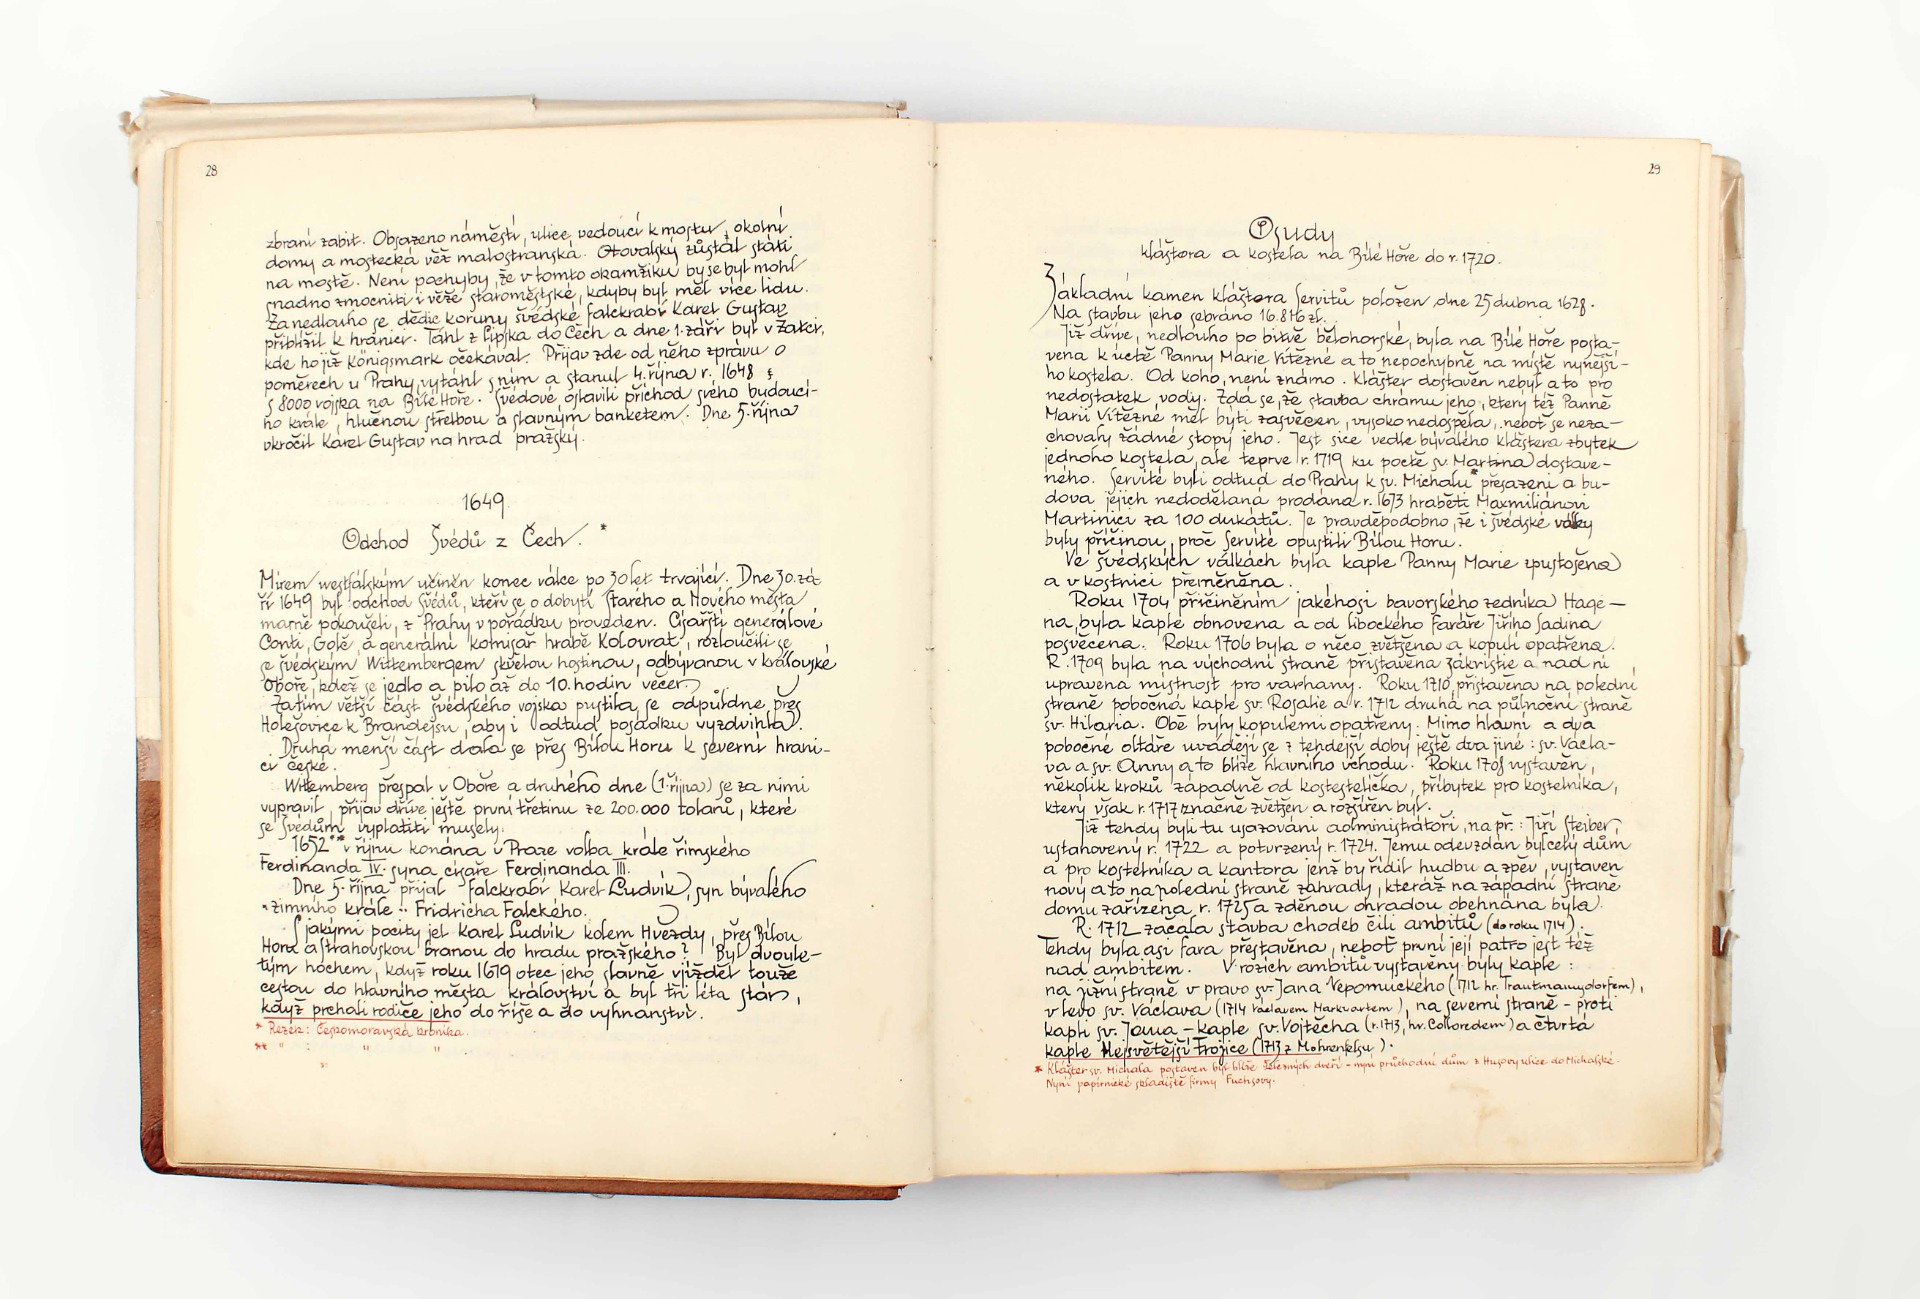 28
zbraní zabit. Obsazeno náměstí, ulice, vedoucí k mostu, okolní
domy a mostecká věž malostranská. Ottovalský zůstal státi
na mostě. Není pochyby, že v tomto okamžiku by se byl mohl
snadno zmocniti i věže staroměstské, kdyby byl měl více lidu.
Zanedlouho se dědic koruny švédské falckrabí Karel Gustav
přiblížil k hranici. Táhl z Lipska do Čech a dne 1. září byl v Žatci,
kde ho již Königsmark očekával. Přijav zde od něho zprávu o
poměrech u Prahy, vytáhl s ním a stanul 4. října r. 1648
s 8000 vojska na Bílé Hoře. Švédové oslavili příchod svého budoucí-
ho krále, hlučnou střelbou a slavným banketem. Dne 5. října
vkročil Karel Gustav na hrad pražský.
1649
Odchod Švédů z Čech. *
Mírem westfálským učiněn konec válce po 30 let trvající. Dne 30. zá-
ří 1649 byl odchod Švédů, kteří se o dobytí Starého a Nového města
marně pokoušeli, z Prahy v pořádku proveden. Císařští generálové
Conti, Golč, a generální komisař hrabě Kolovrat, rozloučili se
se švédským Wittembergem skvělou hostinou, odbývanou v královské
Oboře, kdež se jedlo a pilo až do 10. hodin večer.
Zatím větší část švédského vojska pustila se odpůldne přes
Holešovice k Brandejsu, aby i odtud posádku vyzdvihla.
Druhá menší část dala se přes Bílou Horu k severní hrani-
ci české.
Wittemberg přespal v Oboře a druhého dne (1. října) se za nimi
vypravil, přijav dříve ještě první třetinu ze 200.000 tolarů, které
se Švédům vyplatiti musely.
1652 ** v říjnu konána v Praze volba krále římského
Ferdinanda IV. syna císaře Ferdinanda III.
Dne 5. října přijal falckrabí Karel Ludvík, syn bývalého
"zimního krále" Fridricha Falckého.
S jakými pocity jel Karel Ludvík kolem Hvězdy, přes Bílou
Horu a Strahovskou branou do hradu pražského? Byl dvoule-
tým hochem, když roku 1619 otec jeho slavně vjížděl touže
cestou do hlavního města království a byl tři léta stár,
když prchali rodiče jeho do říše a do vyhnanství.
* Rezek: Českomoravská kronika.
** " : " "
29
Osudy
kláštora a kostela na Bílé Hoře do r. 1720.
Základní kamen kláštora Servitů položen dne 25 dubna 1628.
Na stavbu jeho sebráno 16.816 zl.
Již dříve, nedlouho po bitvě bělohorské, byla na Bílé Hoře posta-
vena k úctě Panny Marie Vítězné a to nepochybně na místě nynější-
ho kostela. Od koho, není známo. Klášter dostavěn nebyl a to pro
nedostatek vody. Zdá se, že stavba chrámu jeho, který též Panně
Marii Vítězné měl býti zasvěcen, vysoko nedospěla, neboť se neza-
chovaly žádné stopy jeho. Jest sice vedle bývalého kláštera zbytek
jednoho kostela, ale teprve r. 1719 ku poctě sv. Martina dostavě-
ného. Servité byli odtud do Prahy k sv. Michalu * přesazeni a bu-
dova jejich nedodělaná prodána r. 1673 hraběti Maxmiliánovi
Martinici za 100 dukátů. Je pravděpodobno, že i švédské války
byly příčinou, proč Servité opustili Bílou Horu.
Ve švédských válkách byla kaple Panny Marie zpustošena
a v kostnici přeměněna.
Roku 1704 přičiněním jakéhosi bavorského zedníka Hage-
na, byla kaple obnovena a od libockého faráře Jiřího Sadina
posvěcena. Roku 1706 byla o něco zvětšena a kopulí opatřena.
R. 1709 byla na východní straně přistavěna zákristie a nad ní
upravena místnost pro varhany. Roku 1710 přistavěna na polední
straně pobočná kaple sv. Rosalie a r. 1712 druhá na půlnoční straně
sv. Hilaria. Obě byly kopulemi opatřeny. Mimo hlavní a dva
pobočné oltáře uvádějí se z tehdejší doby ještě dva jiné: sv. Václa-
va a sv. Anny a to blíže hlavního vchodu. Roku 1708 vystavěn,
několik kroků západně od kostestelíčka, příbytek pro kostelníka,
který však r. 1717 značně zvětšen a rozšířen byl.
Již tehdy byli tu usazováni administrátoři, na př.: Jiří Steiber,
ustanovený r. 1722 a potvrzený r. 1724. Jemu odevzdán byl celý dům
a pro kostelníka a kantora jenž by řídil hudbu a zpěv, vystavěn
nový a to na polední straně zahrady, kteráž na západní straně
domu zařízena r. 1725 a zděnou ohradou obehnána byla.
R. 1712 začala stavba chodeb čili ambitů (do roku 1714).
Tehdy byla asi fara přestavěna, neboť první její patro jest též
nad ambitem. V rozích ambitů vystavěny byly kaple:
na jižní straně v pravo sv. Jana Nepomuckého (1712 hr. Trautmannsdorfem),
v levo sv. Václava (1714 Václavem Markvartem), na severní straně - proti
kapli sv. Jana - kaple sv. Vojtěcha (r. 1713, hr. Colloredem) a čtvrtá
kaple Nejsvětější Trojice (1713 z Mohrenfelsu).
* Klášter sv. Michala postaven byl blíže Železných dveří - nyní průchodní dům z Husovy ulice do Michalské.
Nyní papírnické skladiště firmy Fuchsovy.